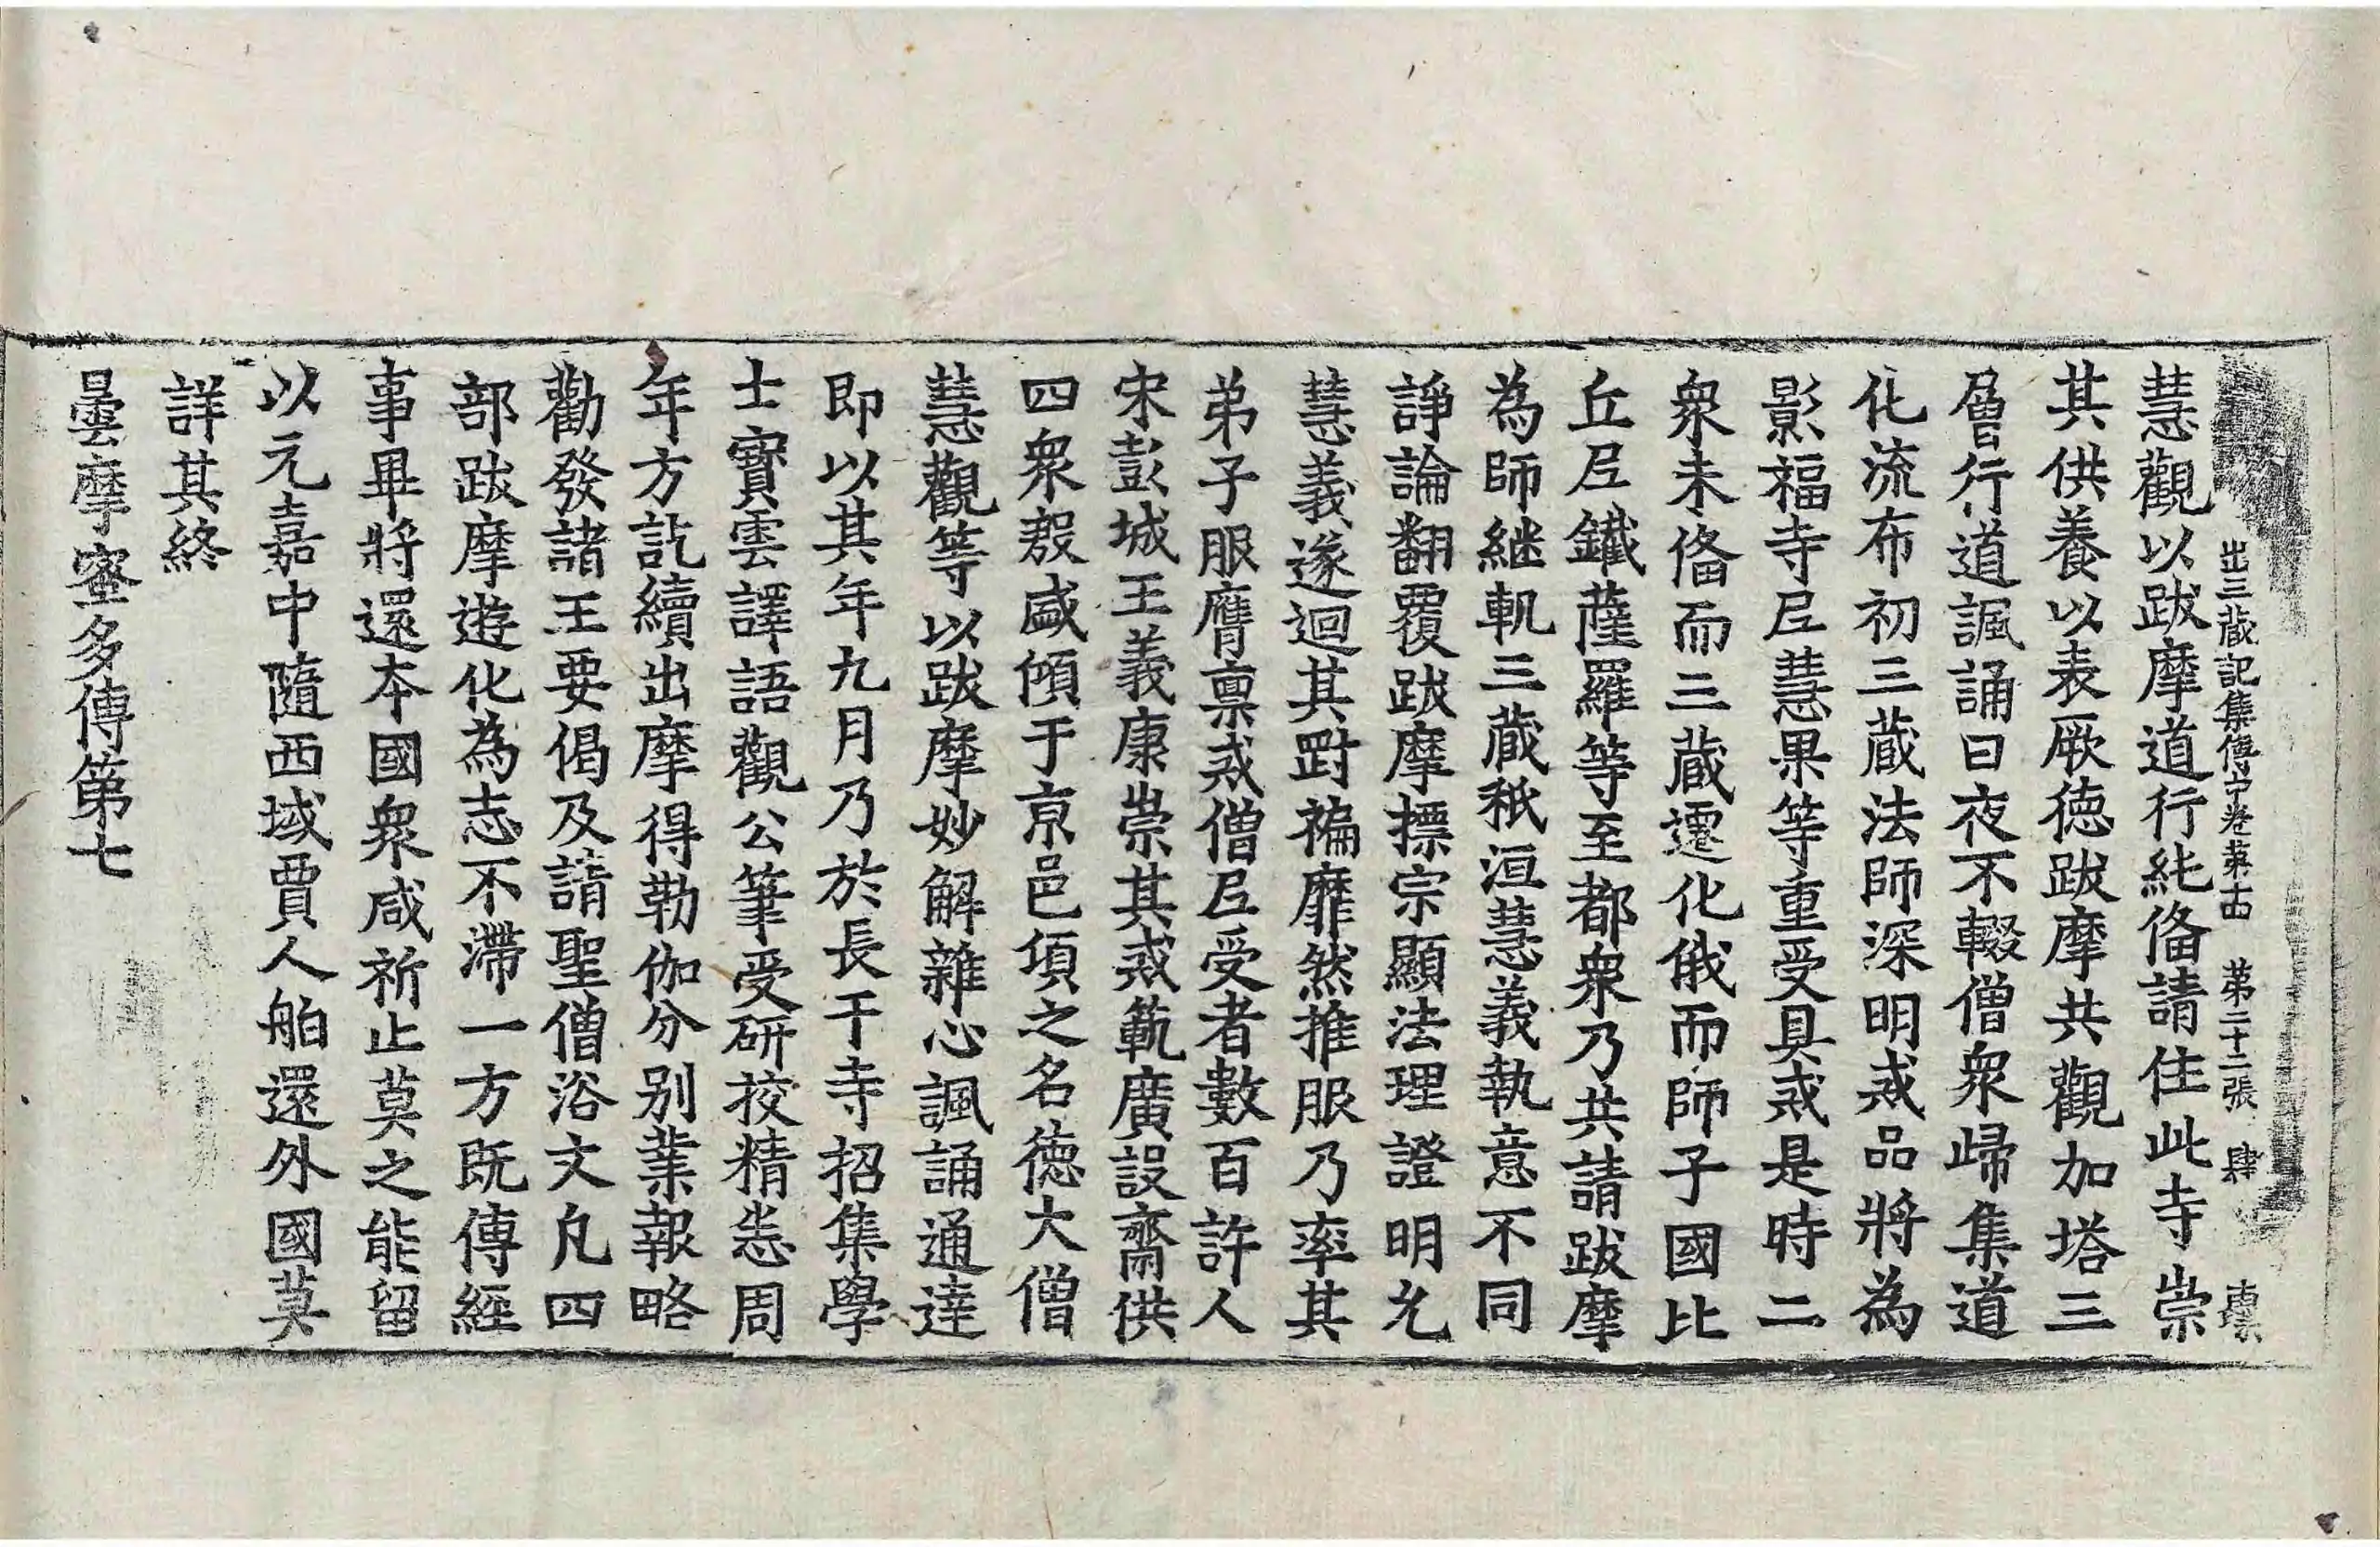 出三藏記集傳中卷第十四　第二十二張　肆
慧觀以跋摩道行純俻請住此寺崇
其供養以表厥德跋摩共觀加塔三
層行道諷誦日夜不輟僧衆歸集道
化流布初三藏法師深明戒品將為
影福寺尼慧果等重受具戒是時二
衆未俻而三藏遷化俄而師子國比
丘尼鐵薩羅等至都衆乃共請跋摩
為師継軌三藏秖洹慧義執意不同
諍論翻覆跋摩摽宗顯法理證明允
慧義遂迴其對褊靡然推服乃率其
弟子服膺禀戒僧尼受者數百許人
宋彭城王義康崇其戒範廣設齋供
四衆殷盛傾于京邑頃之名德大僧
慧觀等以跋摩妙解雜心諷誦通達
即以其年九月乃於長干寺招集學
士寶雲譯語觀公筆受研挍精悉周
年方訖續出摩得勒伽分别業報略
勸發諸王要偈及請聖僧浴文凡四
部跋摩遊化為志不滯一方既傳經
事畢將還本國衆咸祈止莫之能留
以元嘉中隨西域賈人舶還外國莫
詳其終
曇摩蜜多傳第七